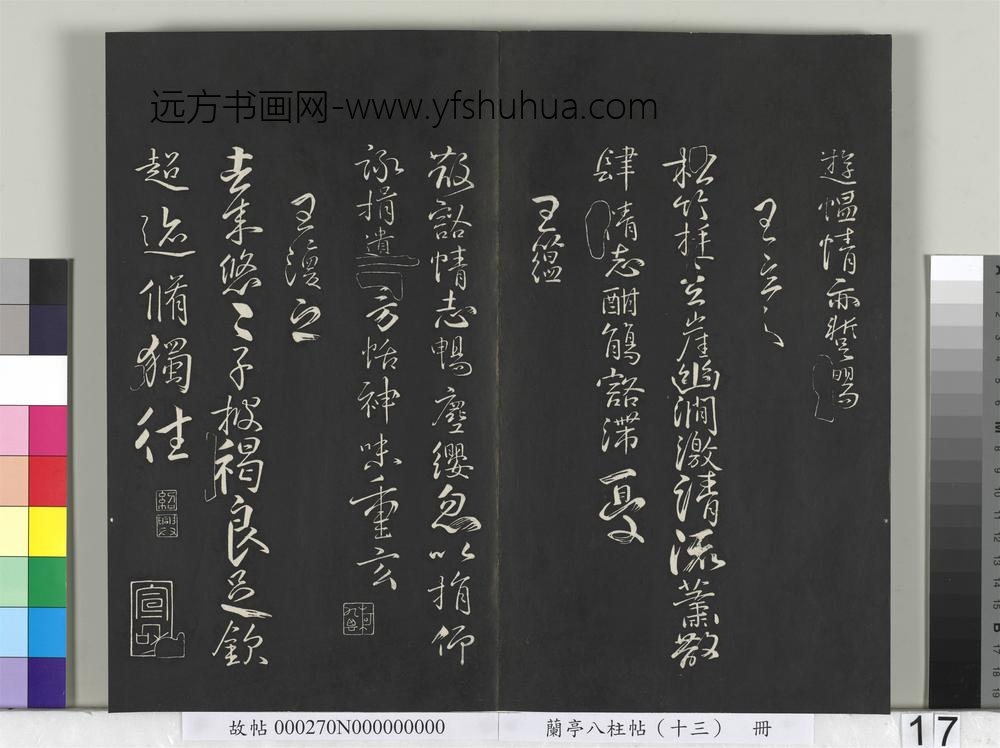 遊慍情亦暫暢
王玄之
松竹挺巖崖幽澗激清流蕭散
肆情志酣觴豁滯憂
王蘊
散豁情志暢塵纓忽以捐仰
詠挹遺芳怡神味重玄
王渙之
去來悠〻子披褐良足欽
超迹脩獨往
紹興
远方书画网-www.yfshuhua.com
故帖 000270N000000000
蘭亭八柱帖(十三) 冊
17